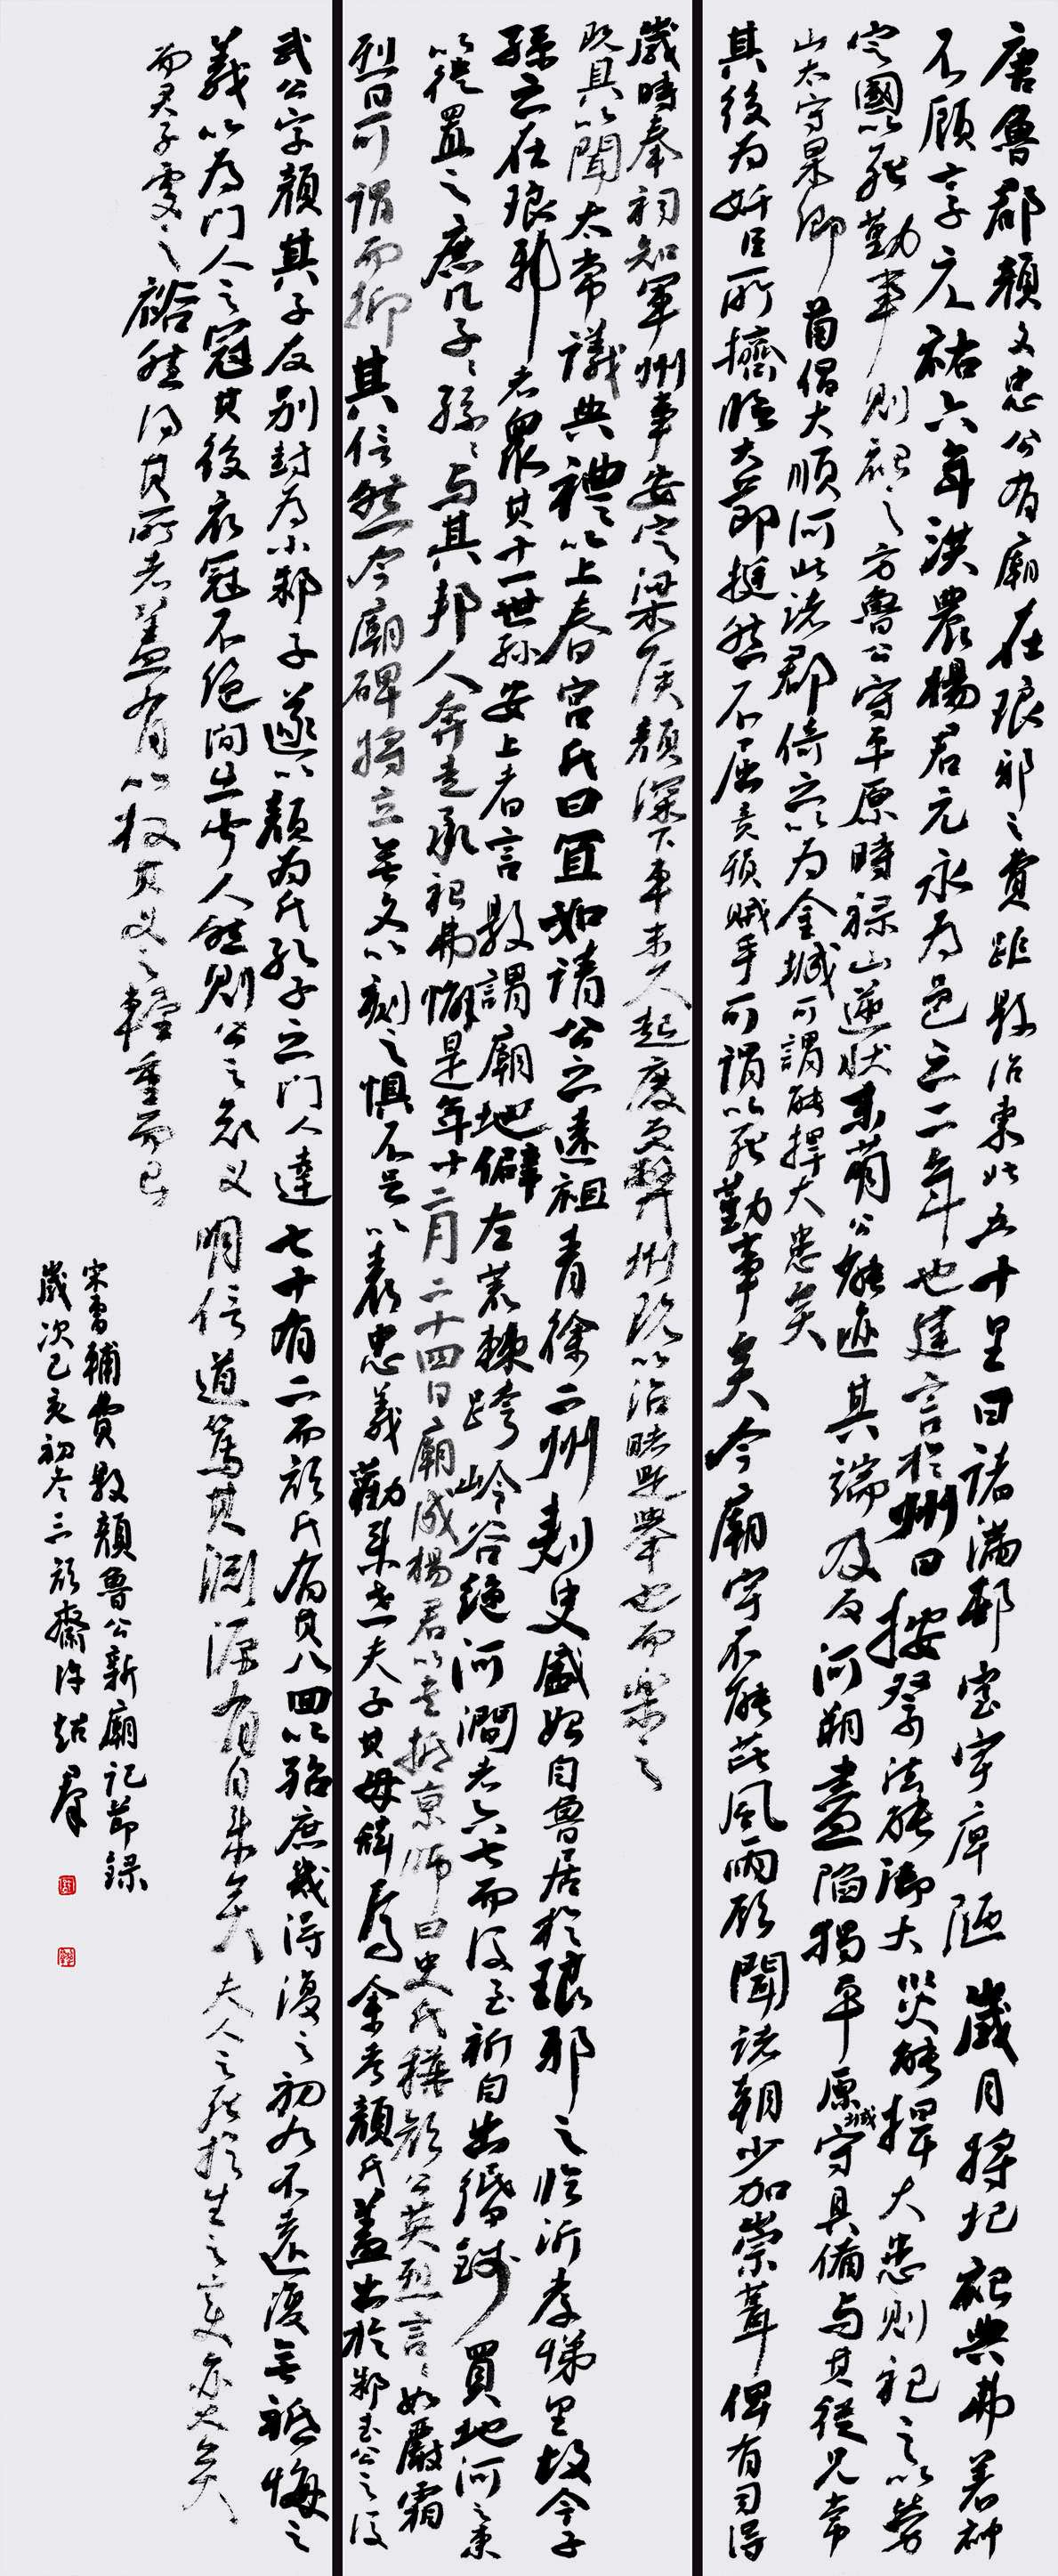 唐魯郡顏文忠公有廟在琅邪之費距縣治東北五十里曰諸滿邨室宇庳陋歲月將圮祀典弗著神
不顧享元祐六年洪農楊君元永為邑之二年也建言於州曰按祭法能御大災能捍大患則祀之以勞
定國以死勤事則祀之方魯公守平原時祿山逆狀未萌公能逆其端及反河朔盡陷獨平原城守具備與其從兄常
山太守杲卿首倡大順河北諸郡倚之以為金城可謂能捍大患矣
其後為奸臣所擠臨大節挺然不屈竟殞賊手可謂以死勤事矣今廟宇不能芘風雨願聞諸朝少加崇葺俾有司得
歲時奉祠知軍州事安定梁侯顏深下車未久起廢易弊州既以治睹是舉也而樂之
既具以聞太常議典禮之以上春官氏曰宜如請公之遠祖青徐二州刺史盛始自魯居於琅邪之臨沂孝悌里故今子
孫之在琅邪者眾其十一世孫安上者言縣謂廟地僻左荒棘跨嶺谷絕河澗者六七而後至祈自出緡錢買地河之東
以徙置之庶几子子孫孫與其邦人奔走承祀弗懈是年十二月二十四日廟成楊君以書抵京師曰史氏稱顏公英烈言言如嚴霜
烈日可謂而抑其信然今廟碑將立無文以刻之惧不足以表忠義勸來世夫子其毋辭屬余考顏氏蓋出於邾武公之後
武公字顏其子友別封為小邾子遂以顏為氏孔子之門人達七十有二而顏氏有其八回以殆庶幾得復之初九不遠復無祇悔之
義以為門人之冠其後衣冠不絕間出聞人然則公之忠義明信道篤其淵源有自來矣夫人之死於生之變亦大矣
而君子處之裕然得其所者蓋有以权其义之輕重而已
宋曹輔費縣顏魯公新廟記節錄
歲次己亥初冬三顧齋許超群